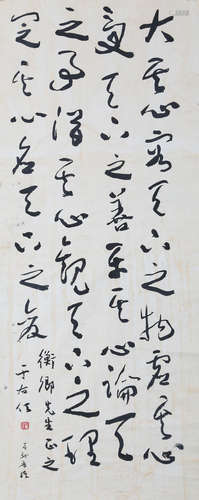 大其心容天下之物虛其心
受天下之善平其心論天下
之事潛其心觀天下之理
定其心應天下之變
衡卿先生正之
于右任